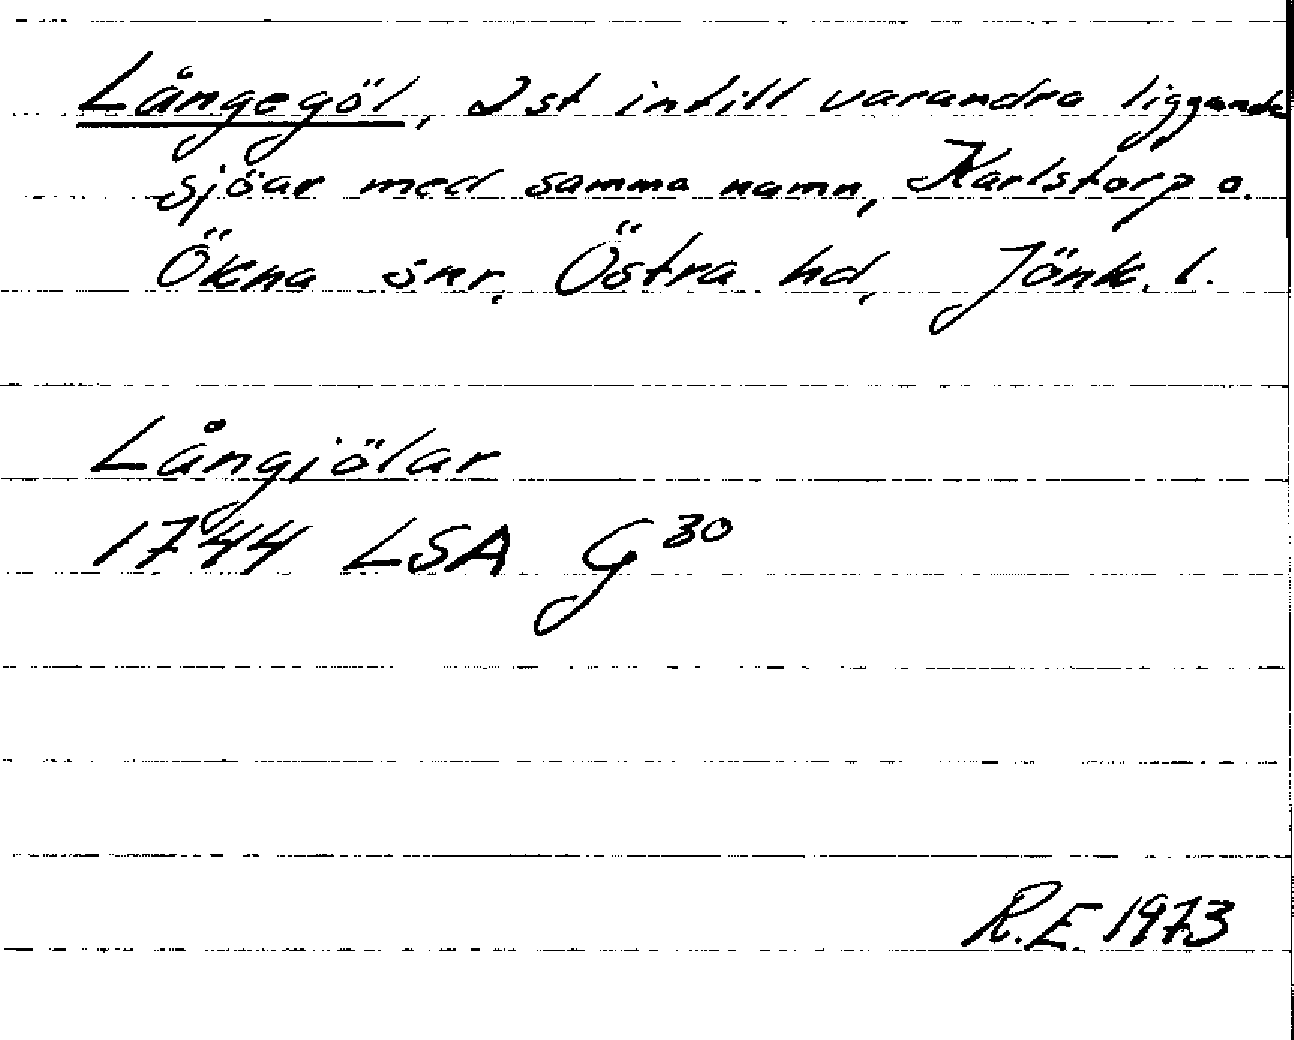 Långegöl, 2st intill varandra liggande
sjöar med samma namn, Karlstorp o.
Ökna snr, Östra hd, Jönk. l.
Långjölar
1744 LSA G 30
R.E. 1973